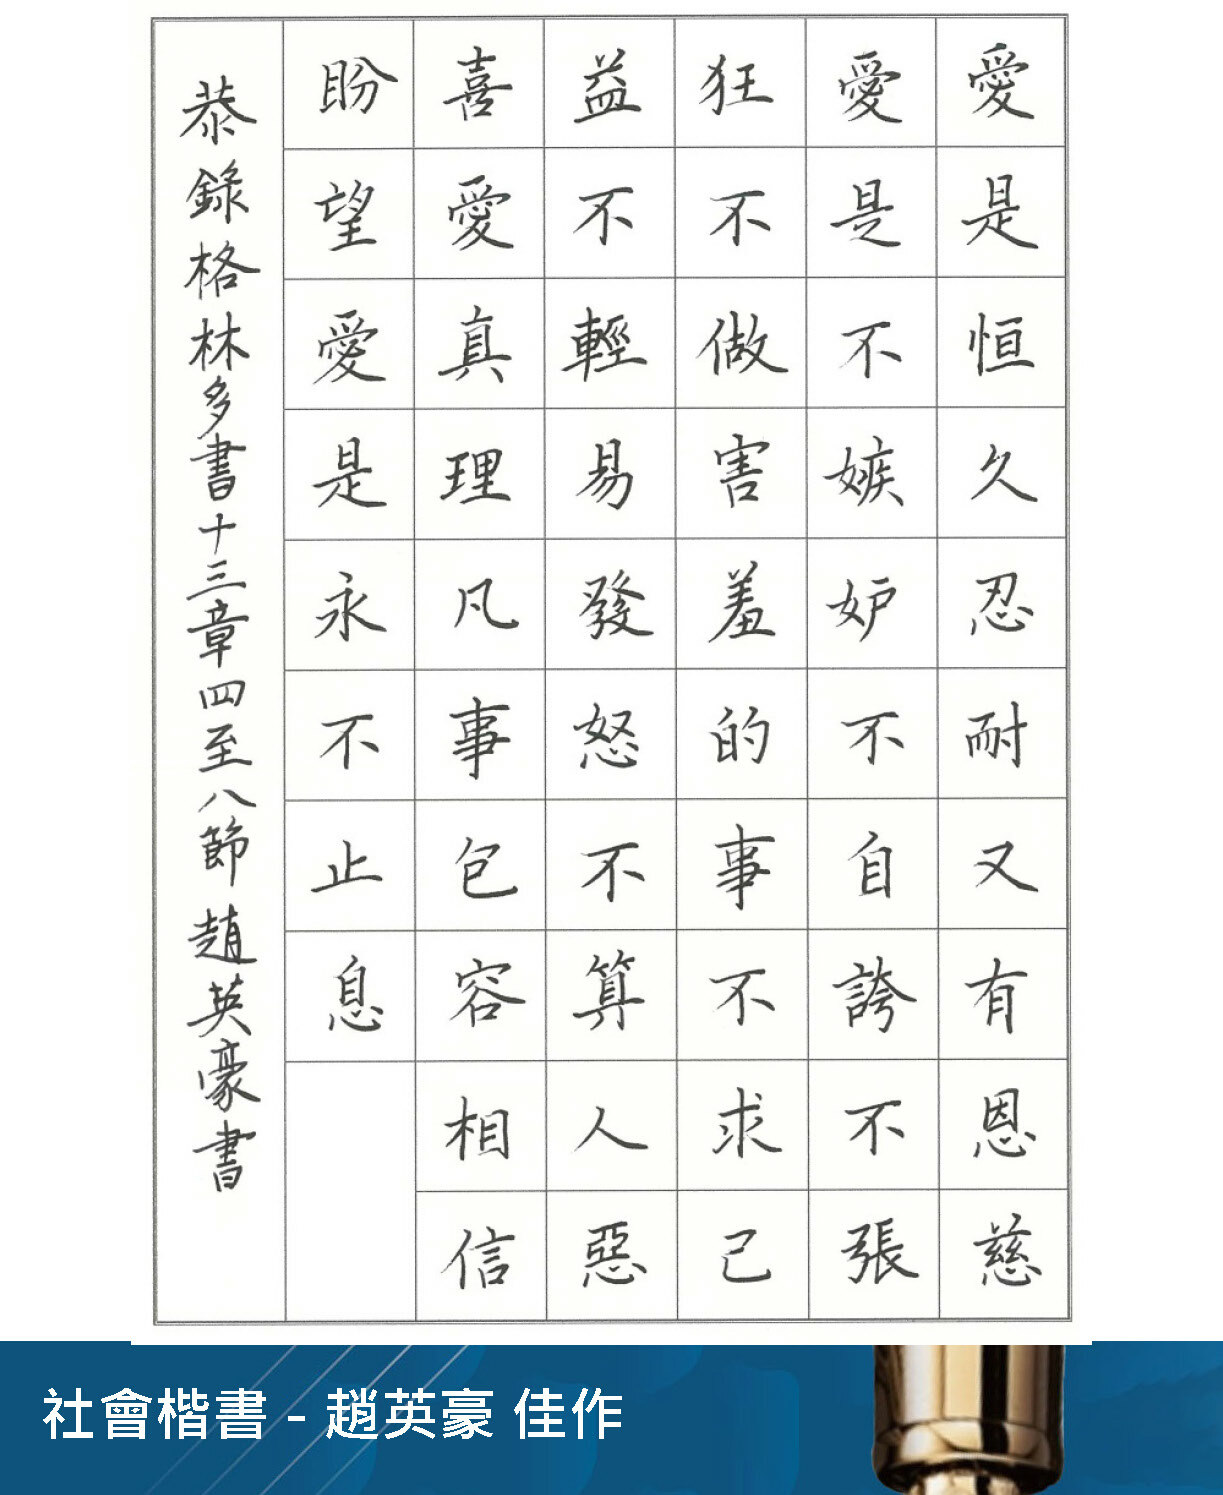 愛是恒久忍耐又有恩慈
愛是不嫉妒不自誇不張
狂不做害羞的事不求己
益不輕易發怒不算人惡
喜愛真理凡事包容相信
盼望愛是永不止息
恭錄格林多書十三章四至八節趙英豪書
社會楷書 - 趙英豪 佳作